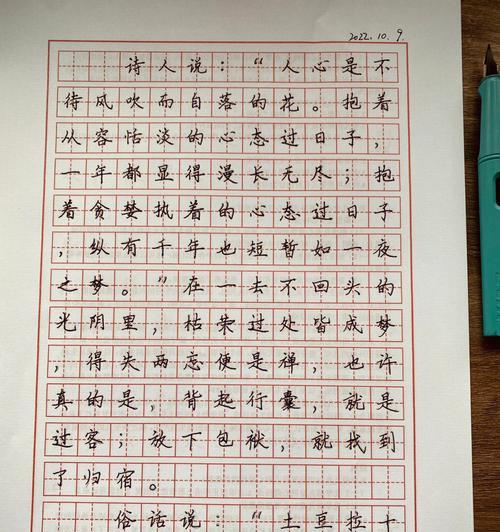 2022.10.9.
诗人说：“人心是不
待风吹而自落的花。抱着
从容恬淡的心态过日子，
一年都显得漫长无尽；抱
着贪婪执着的心态过日子
，纵有千年也短暂如一夜
之梦。”在一去不回头的
光阴里，枯荣过处皆成梦
，得失两忘便是禅，也许
真的是，背起行囊，就是
过客；放下包袱，就找到
了归宿。
俗话说：“土豆拉